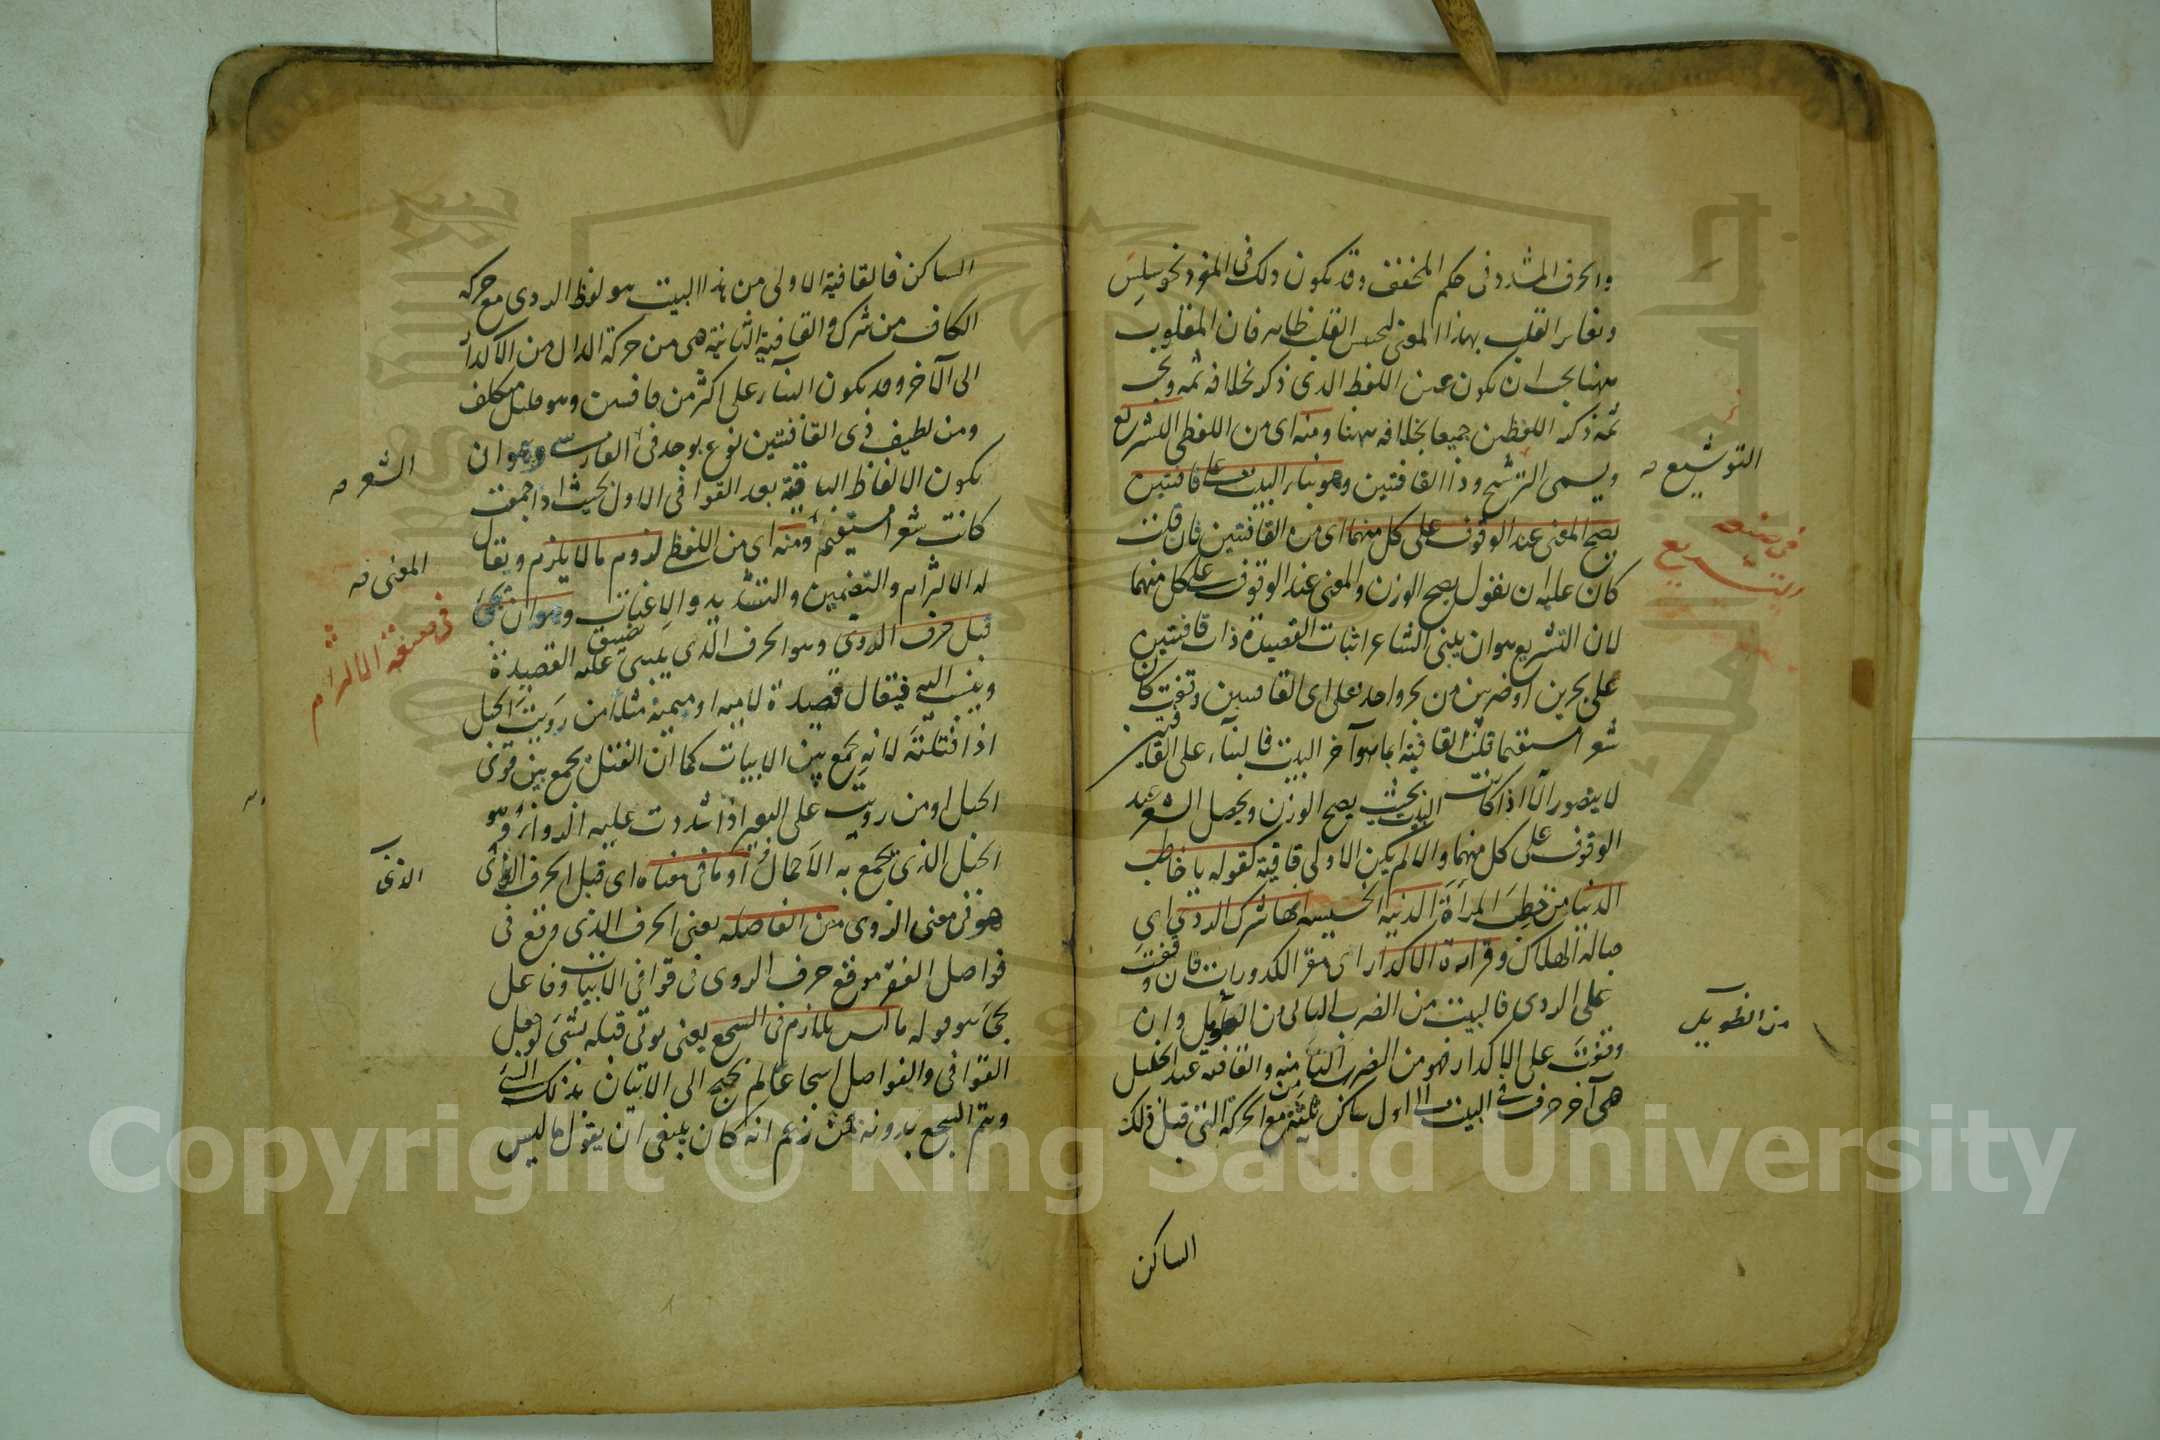 والحرف المشدد فى حكم المخفف وقد يكون ذلك فى المفرد نحو سلس
وتغاير القلب بهذا المعنى لتجنيس القلب ظاهر فان المقلوب
ههنا يجب ان يكون عين اللفظ الذى ذكر بخلافه ثمه ويجب
ثمه ذكر اللفظين جميعا بخلافه ههنا ومنه اى من اللفظى التشريع
ويسمى التوشيح وذا القافيتين وهو بناء البيت على قافيتين
يصح المعنى عند الوقوف على كل منهما اى من القافيتين فان قلت
كان عليه ان يقول يصح الوزن والمعنى عند الوقوف على كل منهما
لان التشريع هو ان يبنى الشاعر ابيات القصيدة ذات قافيتين
على بحرين او ضربين من بحر واحد فعلى اى القافيتين وقفت كان
شعرا مستقيما قلت القافية انما هو آخر البيت فالبناء على القافيتين
لا يتصور الا اذا كانت البيت بحيث يصح الوزن ويحصل الشعر عند
الوقوف على كل منهما والا لم يكن الاولى قافية كقوله يا خاطب
الدنيا من خطب المرأة الدنية الخسيسة انها شرك الردى اى
حبالة الهلاك وقرارة الاكدار اى مقر الكدورات فان وقفت
على الردى فالبيت من الضرب الثانى من الكامل وان
وقفت على الاكدار فهو من الضرب الثانى منه والقافية عند الخليل
هى آخر حرف فى البيت الى اول ساكن يليه مع الحركة التى قبل ذلك
الساكن
التوشيع صه
فى صنعة
التشريع
من الطويل
الساكن فالقافية الاولى من هذا البيت هو لفظ الردى مع حركة
الكاف من شرك والقافية الثانية هى من حركة الدال من الاكدار
الى الآخر وقد يكون البناء على اكثر من قافيتين وهو قليل متكلف
ومن لطيف ذى القافيتين نوع يوجد فى الفارسى وهو ان
يكون الالفاظ الباقية بعد القوافى الاول بحيث اذا جمعت
كانت شعرا مستقيما ومنه اى من اللفظى لزوم ما لا يلزم ويقال
له الالتزام والتضمين والتشديد والاعنات وهو ان يجئ
قبل حرف الروى وهو الحرف الذى يبنى عليه القصيدة
وينسب اليه فيقال قصيدة لامية او ميمية مثلا من رويت الحبل
اذا فتلته لانه يجمع بين الابيات كما ان الفتل يجمع بين قوى
الحبل او من رويت على البعير اذا شددت عليه الرواء وهو
الحبل الذى يجمع به الاحمال او ما فى معناه اى قبل الحرف الذى
هو فى معنى الروى من الفاصلة يعنى الحرف الذى وقع فى
فواصل الفقر موقع حرف الروى فى قوافى الابيات وفاعل
يجئ هو قوله ما ليس بلازم فى السجع يعنى يؤتى قبله بشئ لو جعل
القوافى والفواصل اسجاعا لم يحتج الى الاتيان بذلك الشئ
ويتم السجع بدونه فمن زعم انه كان ينبغى ان يقول ما ليس
الشعر صه
المعنى صه
فى صنعة الالتزام
الذى
Copyright © King Saud University